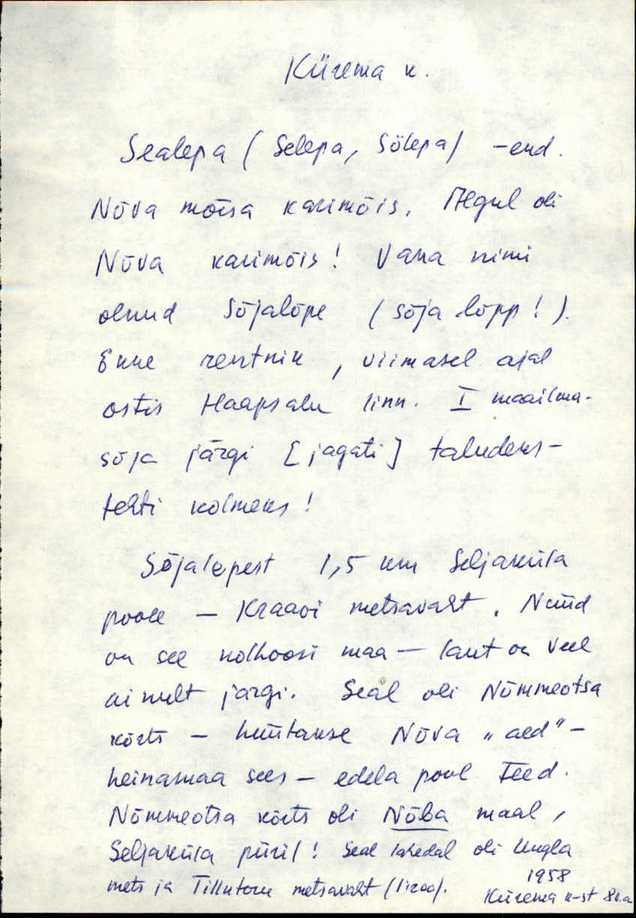 Kiirema k.
Sealepa (Selepa, Sõlepa) - end.
Nõva mõisa karimõis. Algul oli
Nõva karimõis! Vana nimi
olnud Sõjalõpe (sõja lõpp!).
Enne rentnik, viimasel ajal
ostis Haapsalu linn. I maailma-
sõja järgi [jagati] taludeks -
tehti kolmeks!
Sõjalepest 1,5 km Seljaküla
poole - Kraavi metsavaht. Nüüd
on see kolhoosi maa - laut on veel
ainult järgi. Seal oli Nõmmeotsa
kõrts - hüütakse Nõva "aed" -
heinamaa sees - edela pool teed.
Nõmmeotsa kõrts oli Nõba maal,
Seljaküla piiril! Seal lähedal oli Ungla
mets ja Tillutoru metsavaht (1200).
1958
Kiirema k-st